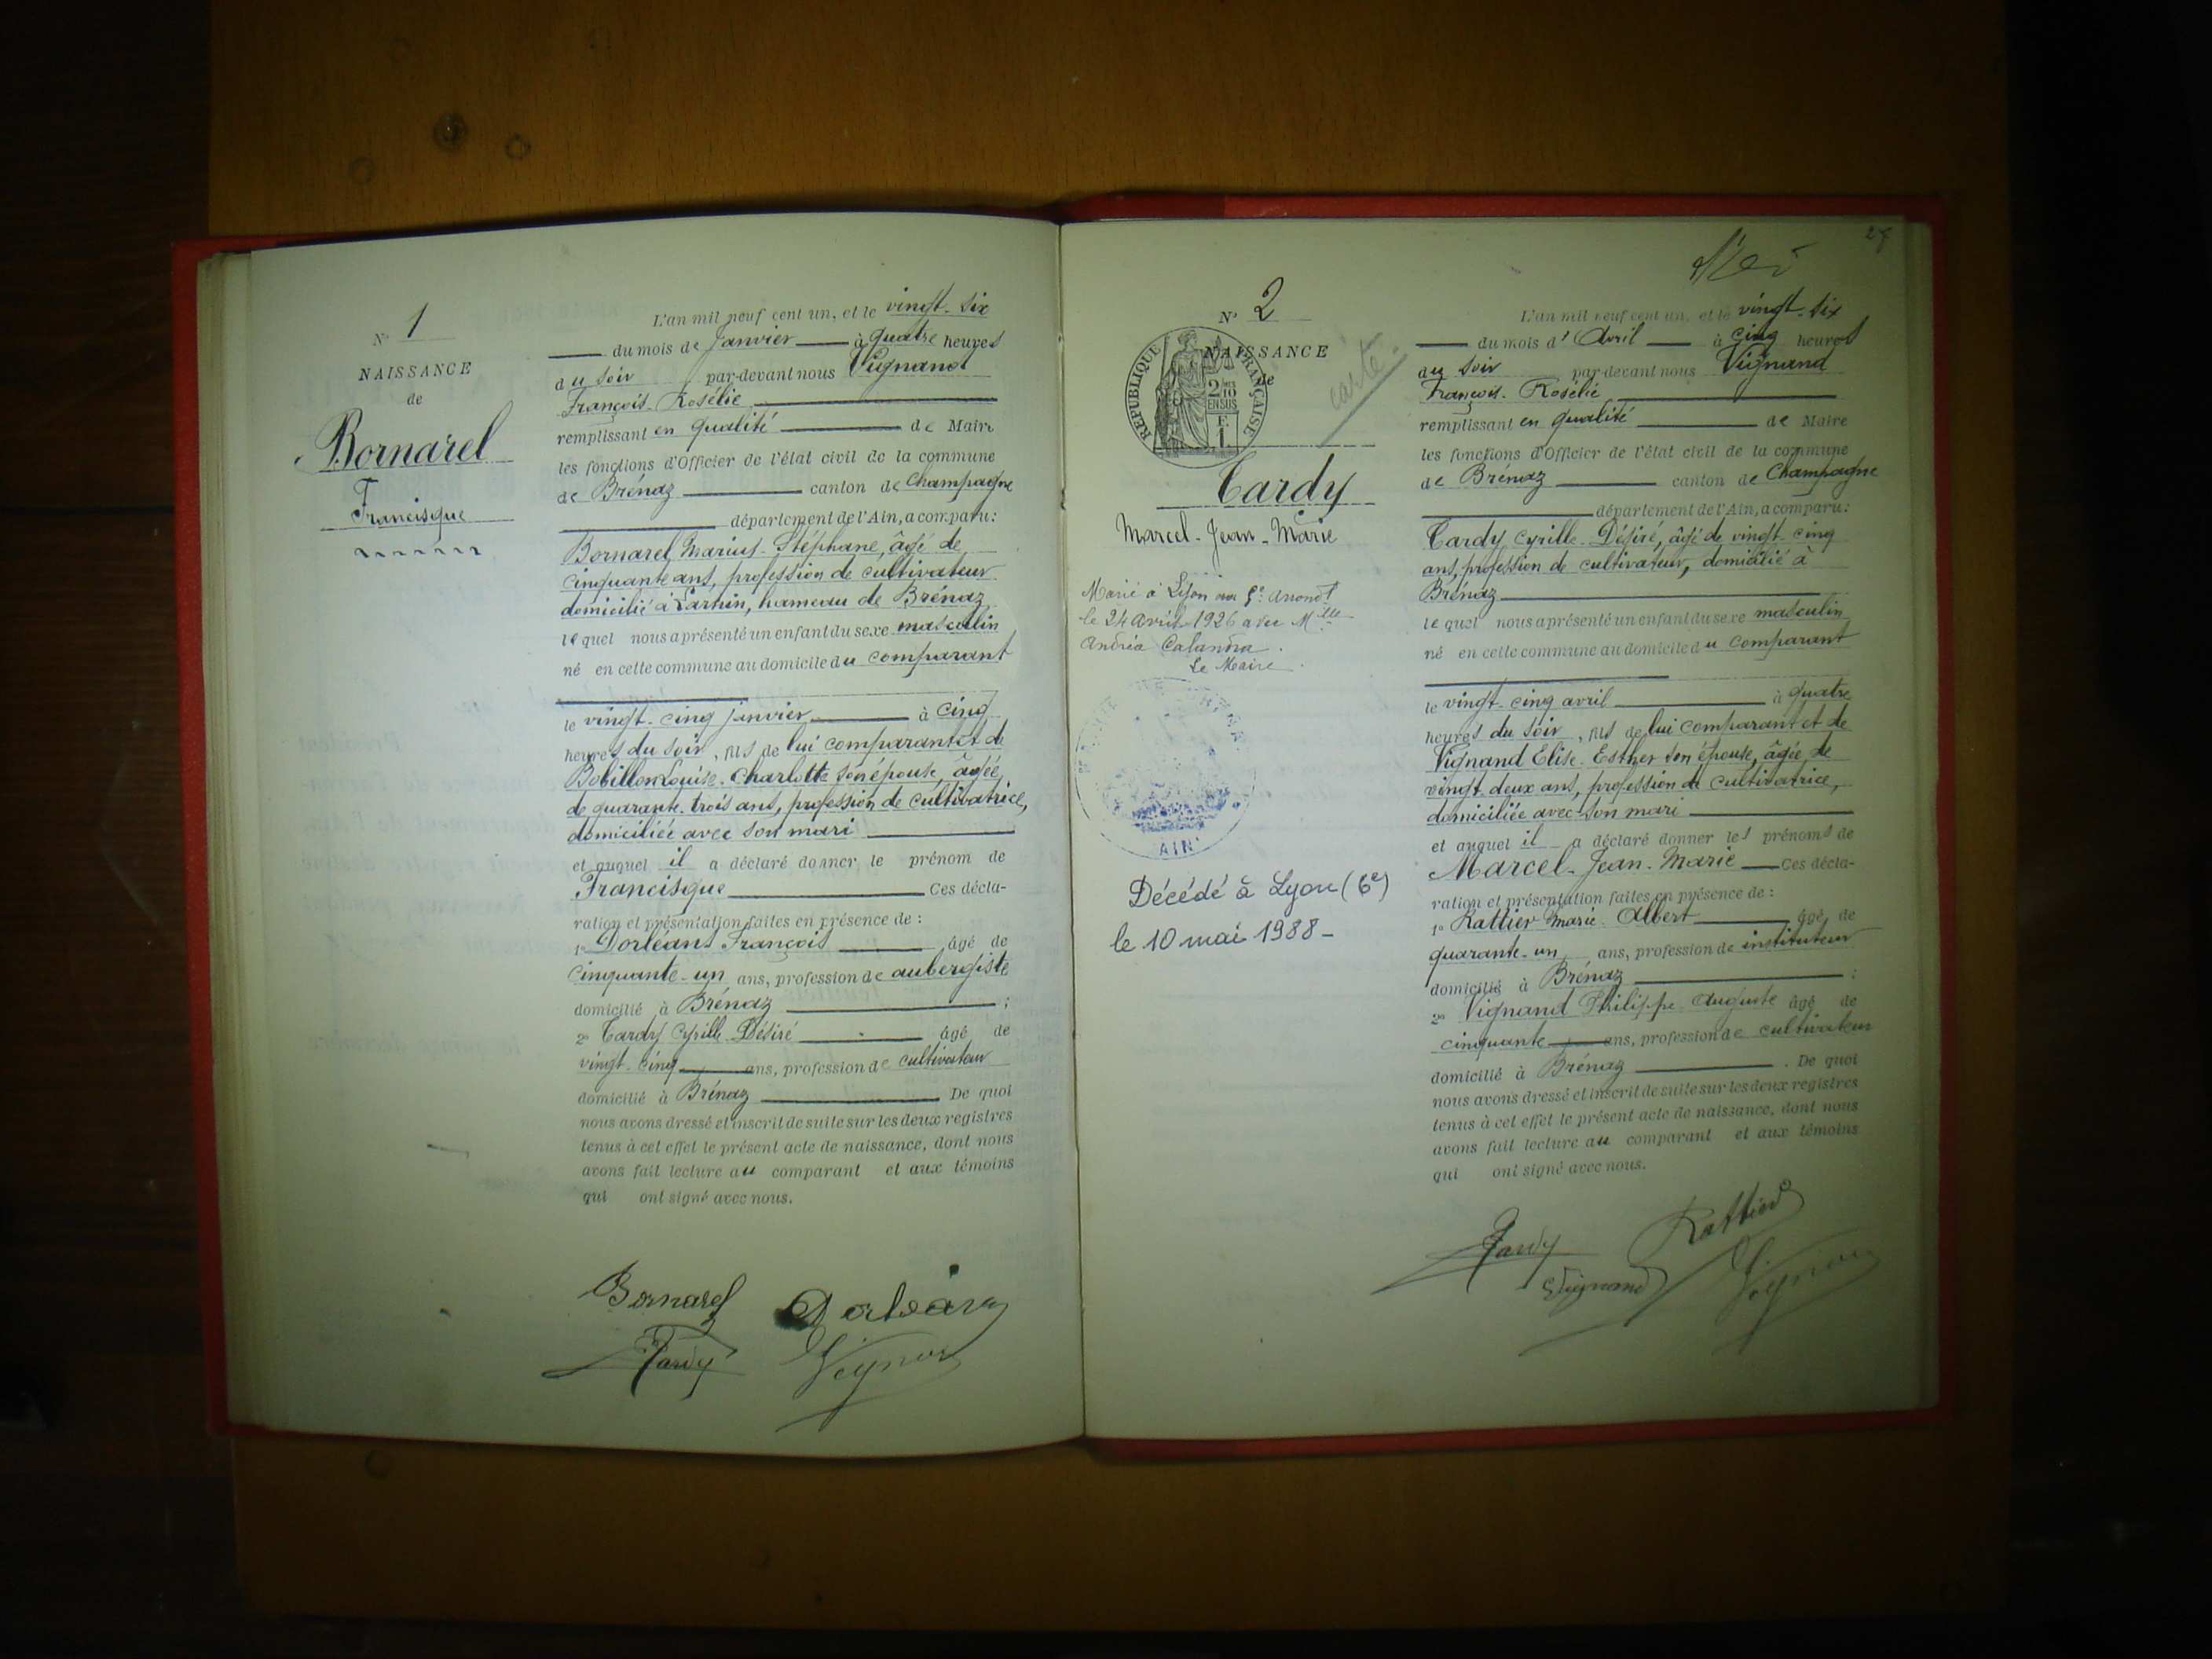 N° 1
NAISSANCE
de
Bornarel
Francisque
L'an mil neuf cent un, et le vingt-six
du mois de Janvier à quatre heures
du soir par-devant nous Vignand
François-Rosélie
remplissant en qualité de Maire
les fonctions d'Officier de l'état civil de la commune
de Brénaz canton de Champagne
département de l'Ain, a comparu:
Bornarel Marius-Stéphane, âgé de
cinquante ans, profession de cultivateur
domicilié à Larhin, hameau de Brénaz
lequel nous a présenté un enfant du sexe masculin
né en cette commune au domicile du comparant
le vingt-cinq janvier à cinq
heures du soir, fils de lui comparant et de
Bobillon Louise-Charlotte son épouse, âgée
de quarante-trois ans, profession de cultivatrice,
domiciliée avec son mari
et auquel il a déclaré donner le prénom de
Francisque Ces décla-
ration et présentation faites en présence de :
1° Dorléans François âgé de
cinquante-un ans, profession de aubergiste
domicilié à Brénaz ;
2° Tardy Cyrille-Désiré âgé de
vingt-cinq ans, profession de cultivateur
domicilié à Brénaz De quoi
nous avons dressé et inscrit de suite sur les deux registres
tenus à cet effet le présent acte de naissance, dont nous
avons fait lecture au comparant et aux témoins
qui ont signé avec nous.
Bornarel Dorléans
Tardy Vignand
27
N° 2
NAISSANCE
de
RÉPUBLIQUE FRANÇAISE
2/10 EN SUS
F. 1
carte
Tardy
Marcel-Jean-Marie
Marié à Lyon 5e arrondt
le 24 avril 1926 avec Mlle
Andréa Calandra.
Le Maire.
AIN
Décédé à Lyon (6e)
le 10 mai 1988-
L'an mil neuf cent un, et le vingt-six
du mois d'Avril à cinq heures
du soir par-devant nous Vignand
François-Rosélie
remplissant en qualité de Maire
les fonctions d'Officier de l'état civil de la commune
de Brénaz canton de Champagne
département de l'Ain, a comparu:
Tardy Cyrille-Désiré, âgé de vingt-cinq
ans, profession de cultivateur, domicilié à
Brénaz
lequel nous a présenté un enfant du sexe masculin
né en cette commune au domicile du comparant
le vingt-cinq avril à quatre
heures du soir, fils de lui comparant et de
Vignand Elise-Esther son épouse, âgée de
vingt-deux ans, profession de cultivatrice,
domiciliée avec son mari
et auquel il a déclaré donner les prénoms de
Marcel-Jean-Marie Ces décla-
ration et présentation faites en présence de :
1° Rattier Marie-Albert âgé de
quarante-un ans, profession de instituteur
domicilié à Brénaz ;
2° Vignand Philippe-Auguste âgé de
cinquante ans, profession de cultivateur
domicilié à Brénaz . De quoi
nous avons dressé et inscrit de suite sur les deux registres
tenus à cet effet le présent acte de naissance, dont nous
avons fait lecture au comparant et aux témoins
qui ont signé avec nous.
Tardy Rattier
Vignand Vignand